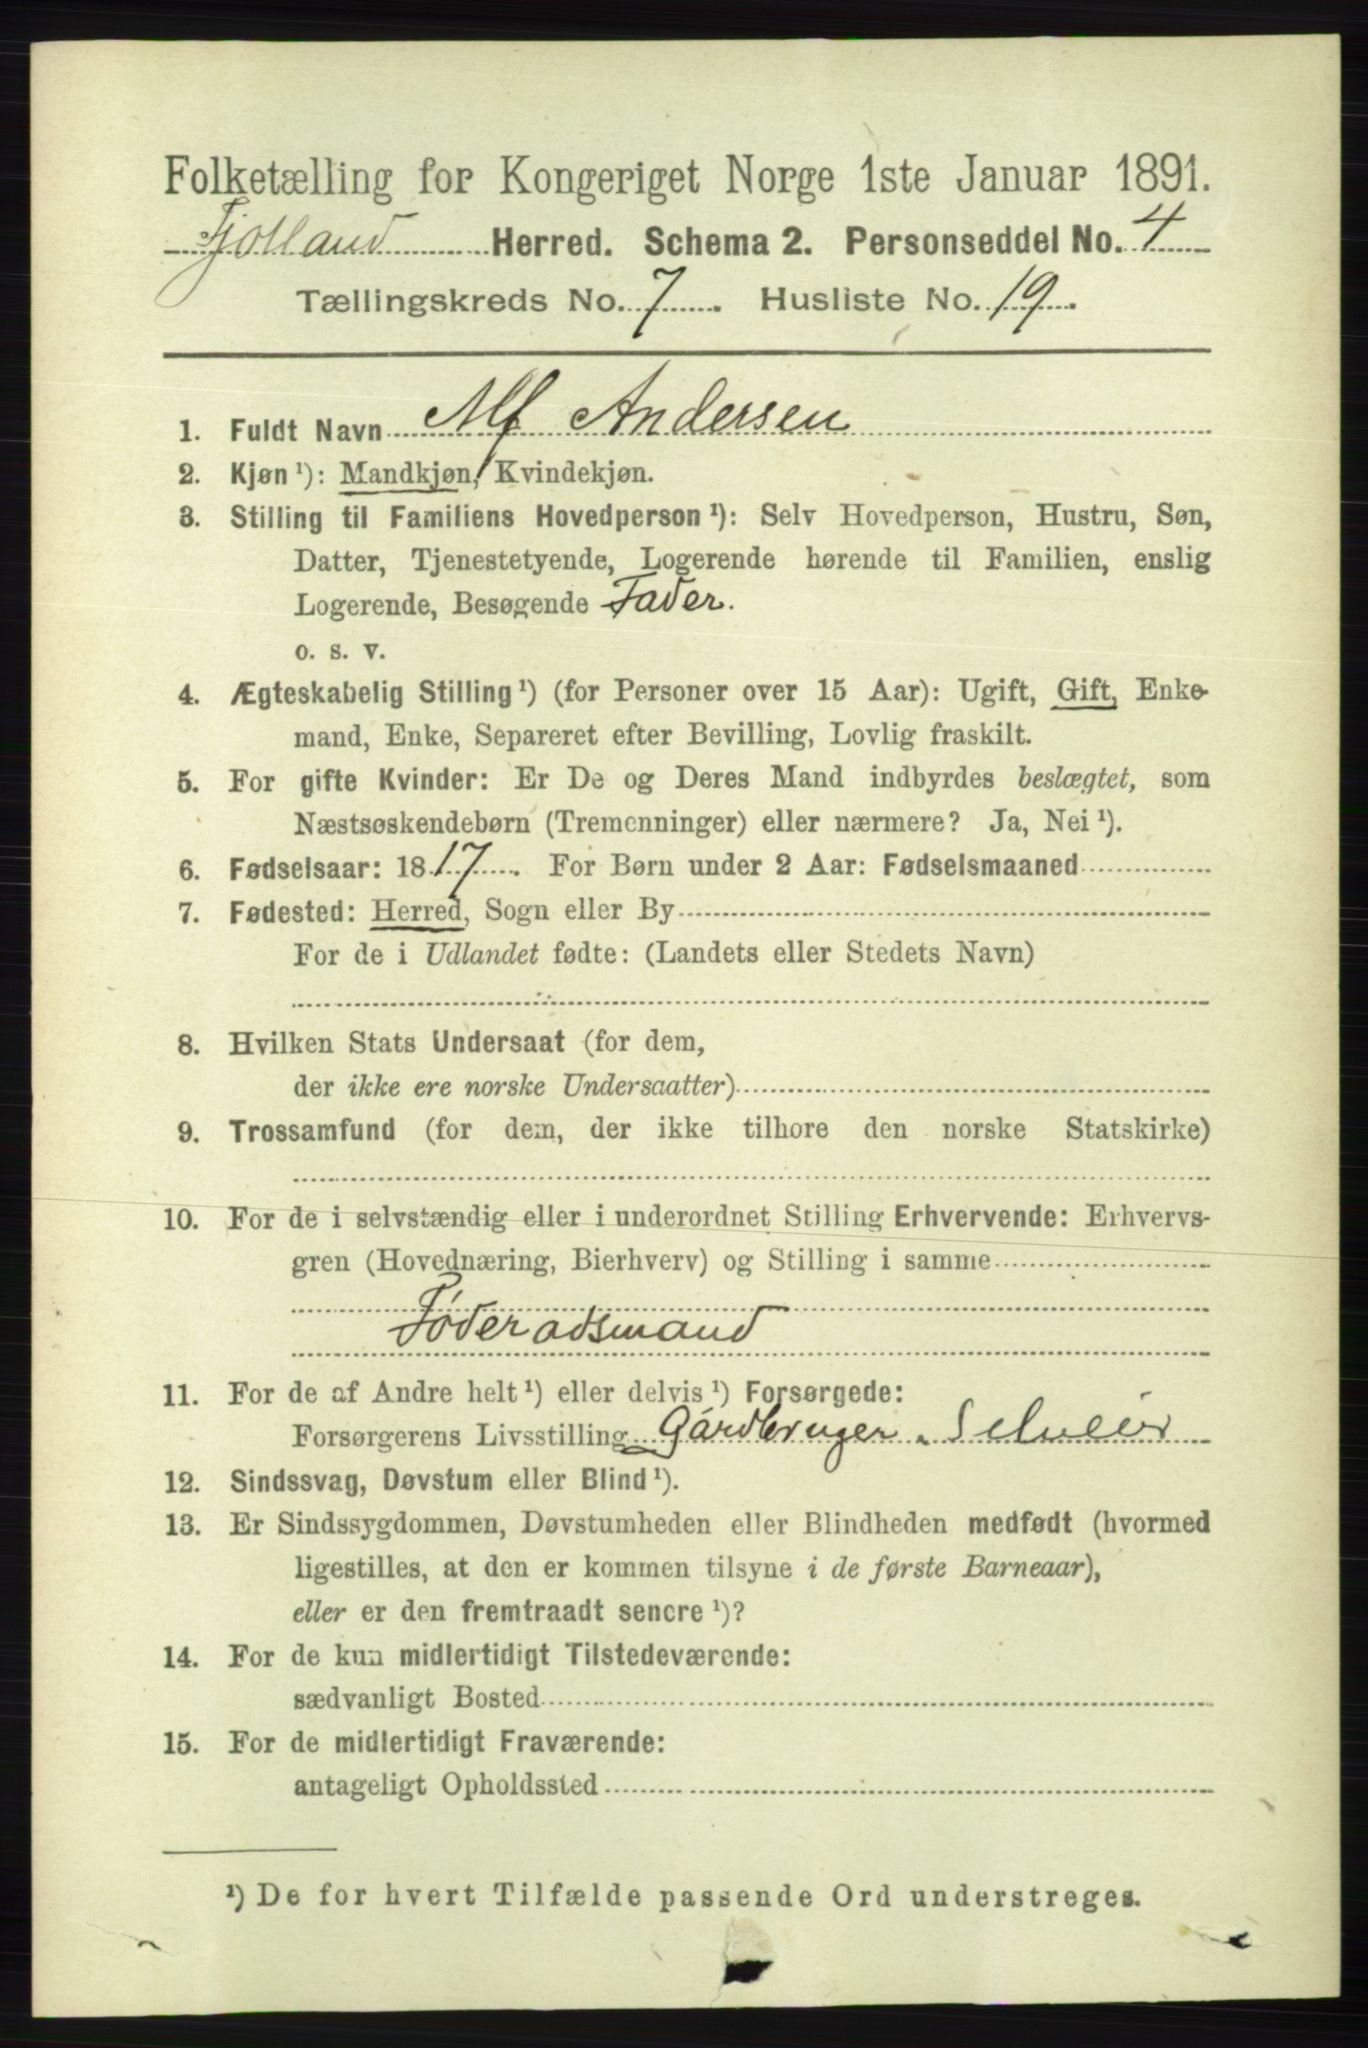 Folketælling for Kongeriget Norge 1ste Januar 1891.
Fjotland Herred. Schema 2. Personseddel No. 4
Tællingskreds No. 7. Husliste No. 19.
1. Fuldt Navn Alf Andersen
2. Kjøn ¹): Mandkjøn, Kvindekjøn.
3. Stilling til Familiens Hovedperson ¹): Selv Hovedperson, Hustru, Søn,
Datter, Tjenestetyende, Logerende hørende til Familien, enslig
Logerende, Besøgende Fader.
o. s. v.
4. Ægteskabelig Stilling ¹) (for Personer over 15 Aar): Ugift, Gift, Enke-
mand, Enke, Separeret efter Bevilling, Lovlig fraskilt.
5. For gifte Kvinder: Er De og Deres Mand indbyrdes beslægtet, som
Næstsøskendebørn (Tremenninger) eller nærmere? Ja, Nei ¹).
6. Fødselsaar: 1817. For Børn under 2 Aar: Fødselsmaaned
7. Fødested: Herred, Sogn eller By
For de i Udlandet fødte: (Landets eller Stedets Navn)
8. Hvilken Stats Undersaat (for dem,
der ikke ere norske Undersaatter)
9. Trossamfund (for dem, der ikke tilhøre den norske Statskirke)
10. For de i selvstændig eller i underordnet Stilling Erhvervende: Erhvervs-
gren (Hovednæring, Bierhverv) og Stilling i samme
Føderadsmand
11. For de af Andre helt ¹) eller delvis ¹) Forsørgede:
Forsørgerens Livsstilling Gårdbruger, Selveier
12. Sindssvag, Døvstum eller Blind ¹).
13. Er Sindssygdommen, Døvstumheden eller Blindheden medfødt (hvormed
ligestilles, at den er kommen tilsyne i de første Barneaar),
eller er den fremtraadt senere ¹)?
14. For de kun midlertidigt Tilstedeværende:
sædvanligt Bosted
15. For de midlertidigt Fraværende:
antageligt Opholdssted
¹) De for hvert Tilfælde passende Ord understreges.